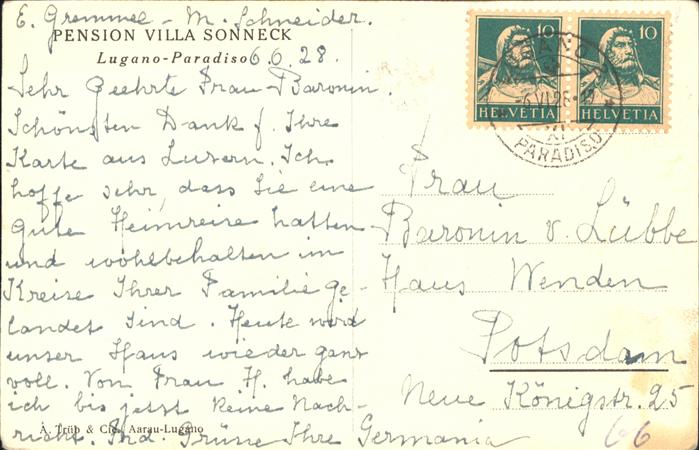 E. Gremmel - M. Schneider.
PENSION VILLA SONNECK
Lugano-Paradiso 6.6.28.
Sehr Geehrte Frau Baronin.
Schönsten Dank f. Ihre
Karte aus Luzern. Ich
hoffe sehr, dass Sie eine
gute Heimreise hatten
und wohlbehalten im
Kreise Ihrer Familie ge-
landet sind. Heute wird
unser Haus wieder ganz
voll. Von Frau H. habe
ich bis jetzt keine Nach-
richt. Ihd. Grüsse Ihre Germania
A. Trüb & Cie., Aarau-Lugano
10 10
HELVETIA HELVETIA
LUGANO
6.VI.28
XI
PARADISO
Frau
Baronin v. Lübbe
Haus Wenden
Potsdam
Neue Königstr. 25
66